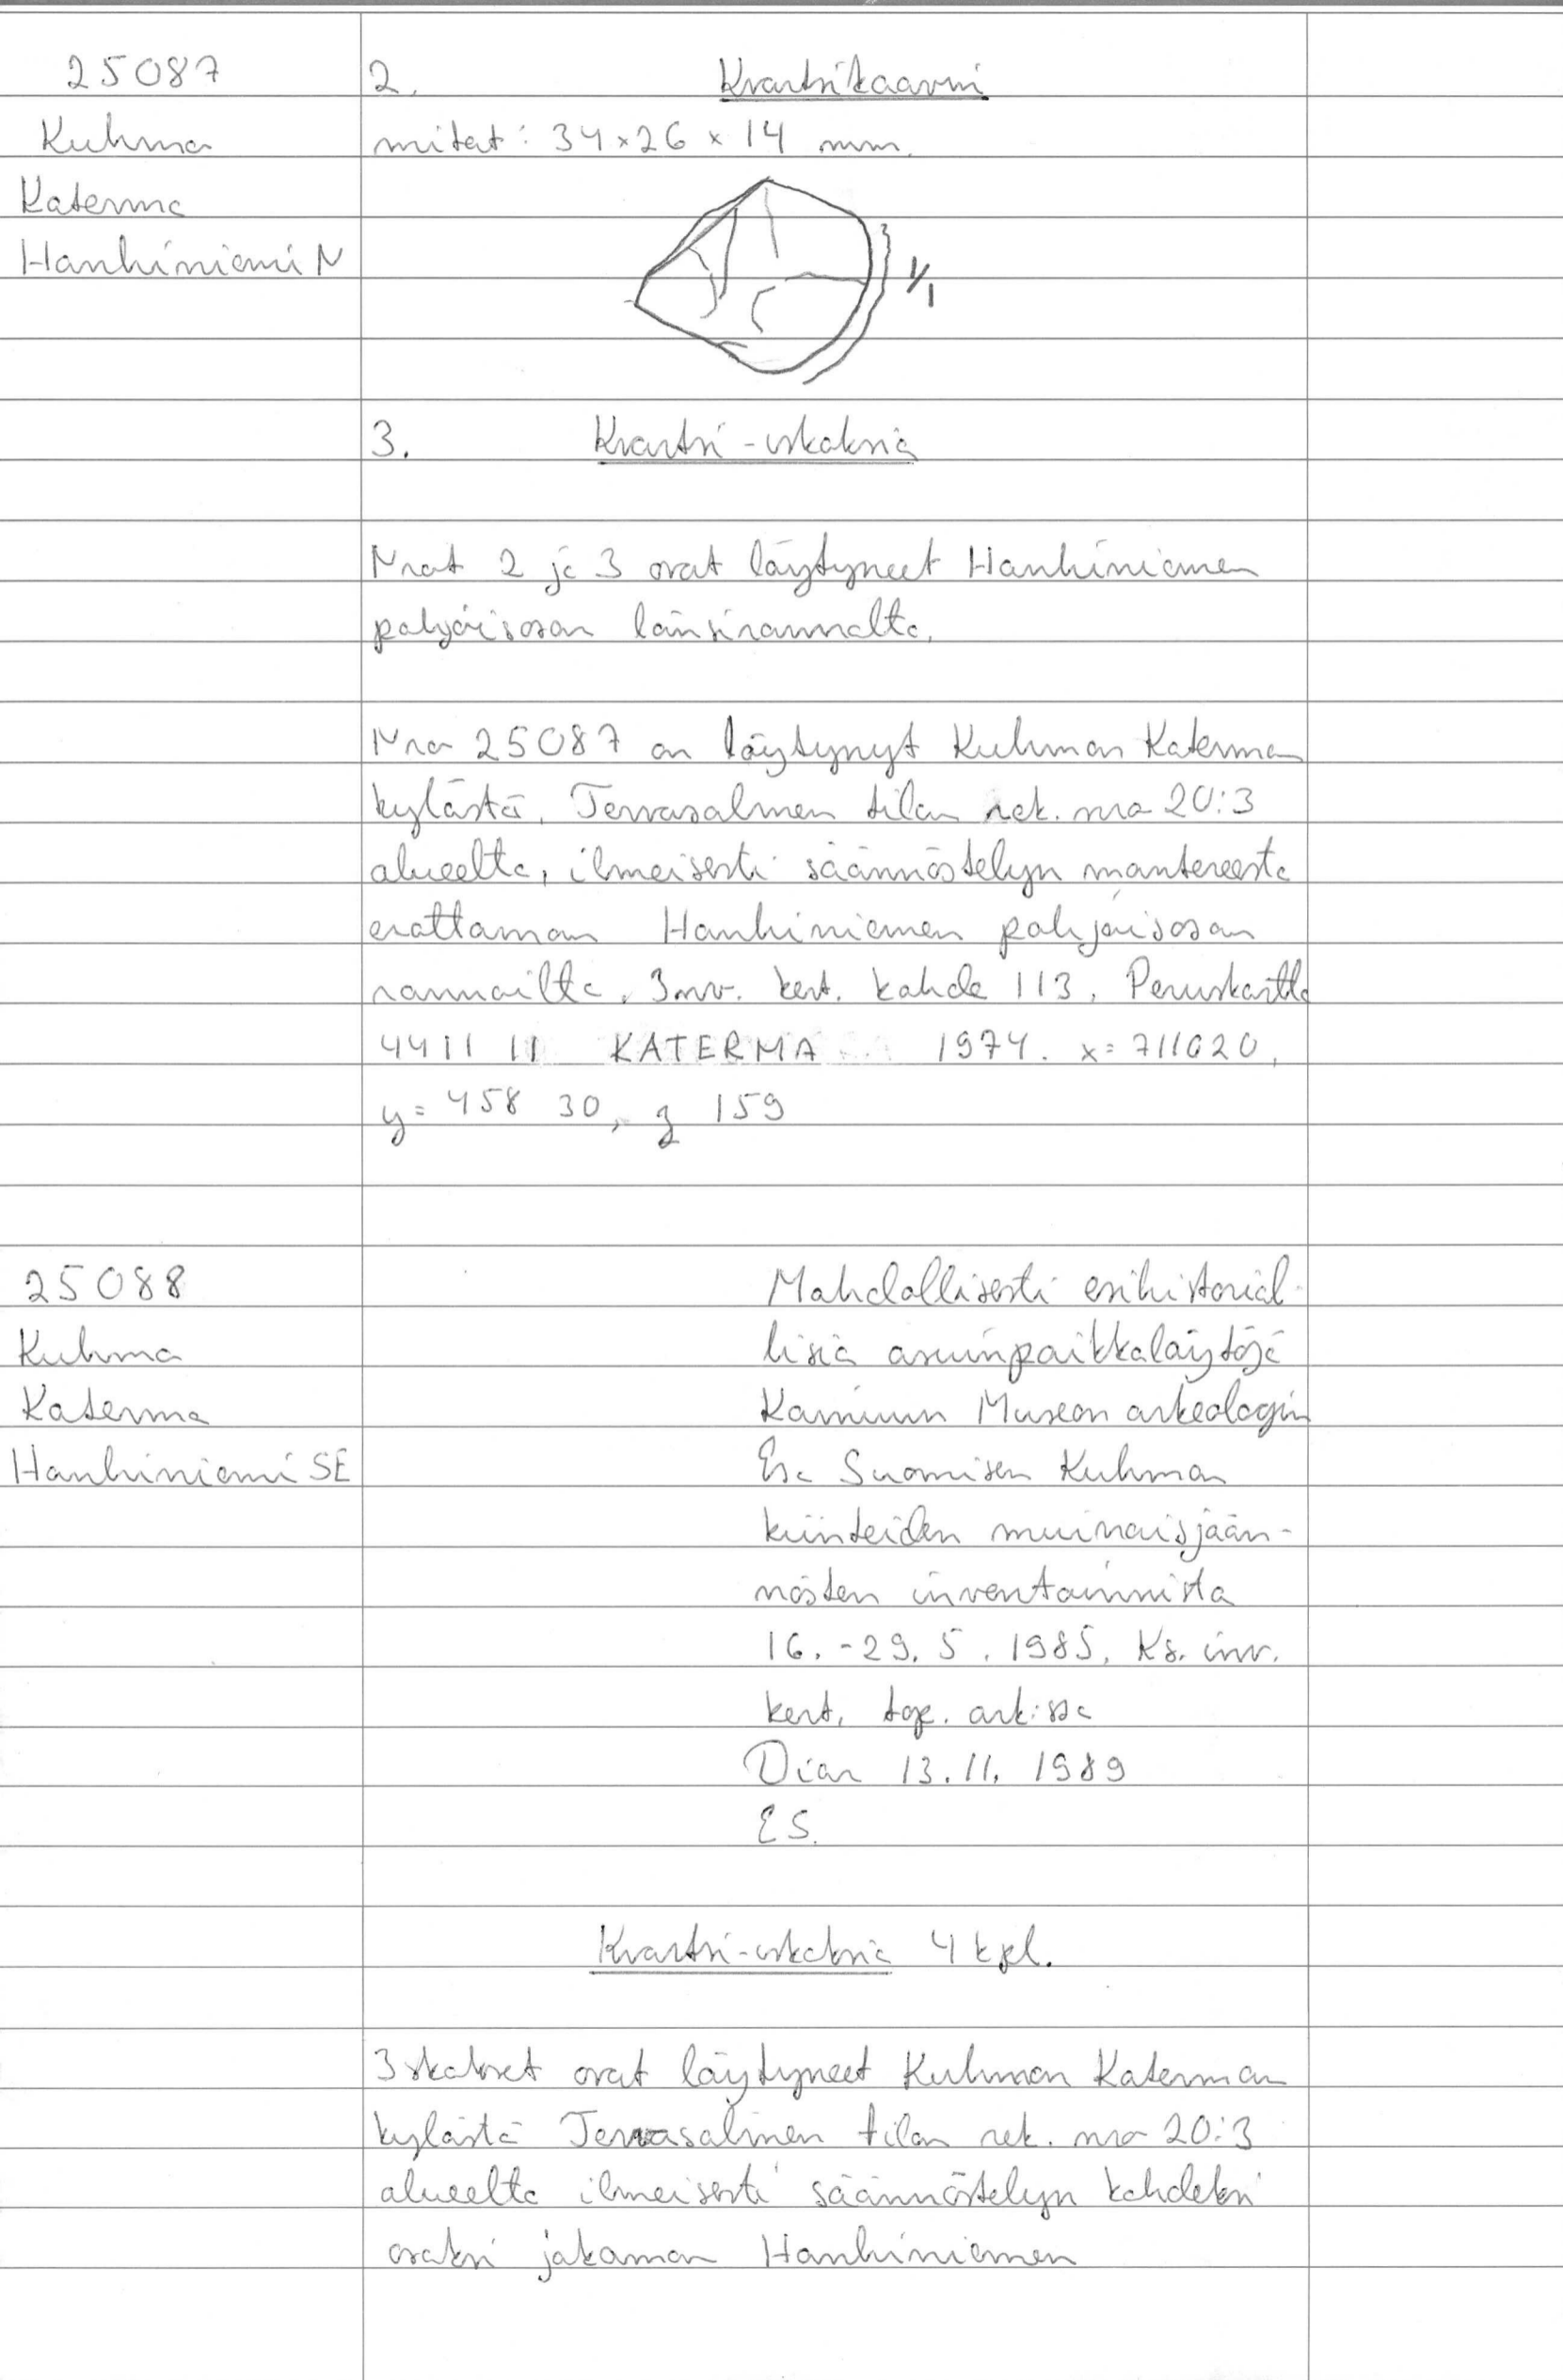 25087 2. Kvartsikaavin
Kuhmo mitat: 34 x 26 x 14 mm.
Katerma
Hanhiniemi N
1/1
3. Kvartsi-iskoksia
Nrot 2 ja 3 ovat löytyneet Hanhiniemen
pohjoisosan länsirannalta.
Nro 25087 on löytynyt Kuhmon Katerman
kylästä, Tervasalmen tilan rek. nro 20:3
alueelta, ilmeisesti säännöstelyn mantereesta
erottaman Hanhiniemen pohjoisosan
rannoilta. Inv. kert. kohde 113. Peruskartta
4411 11 KATERMA 1974. x= 711020,
y= 458 30, z 159
25088 Mahdollisesti esihistorial-
Kuhmo lisia asuinpaikkalöytöjä
Katerma Kainuun Museon arkeologin
Hanhiniemi SE Esa Suomisen Kuhmon
kiinteiden muinaisjään-
nösten inventoinnista
16.-29.5.1985. Ks. inv.
kert. top. ark:ssa
Diar 13.11.1989
ES.
Kvartsi-iskoksia 4 kpl.
Iskokset ovat löytyneet Kuhmon Katerman
kylästä Tervasalmen tilan rek. nro 20:3
alueelta ilmeisesti säännöstelyn kahdeksi
osaksi jakaman Hanhiniemen